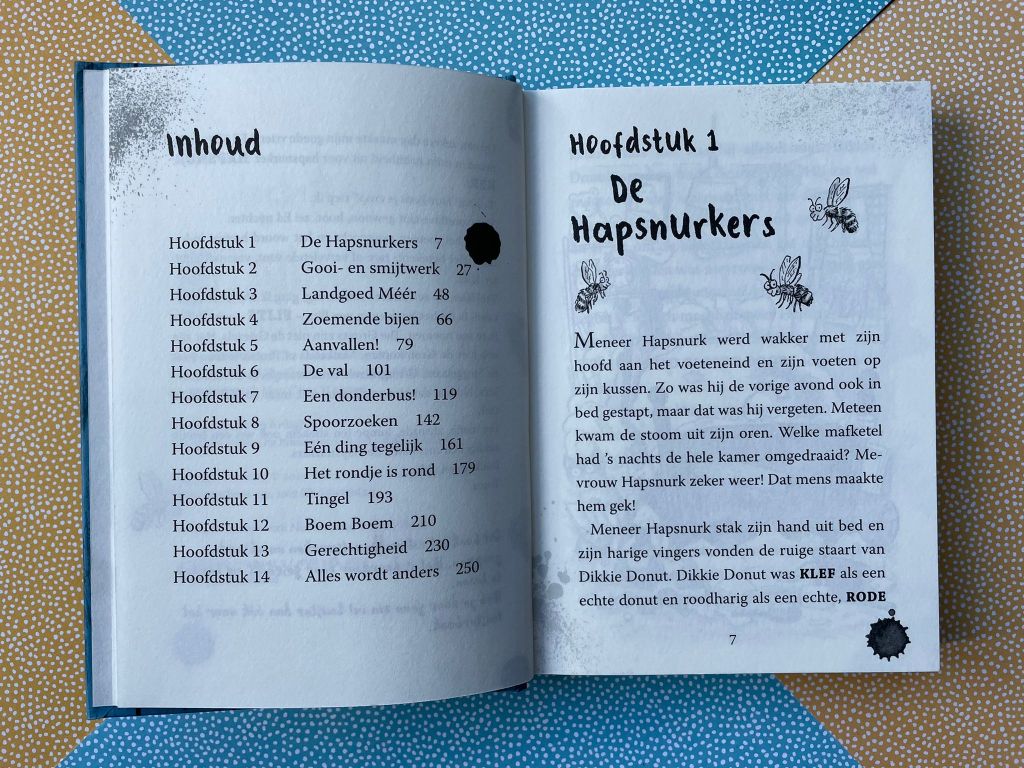 Inhoud
Hoofdstuk 1 De Hapsnurkers 7
Hoofdstuk 2 Gooi- en smijtwerk 27
Hoofdstuk 3 Landgoed Méér 48
Hoofdstuk 4 Zoemende bijen 66
Hoofdstuk 5 Aanvallen! 79
Hoofdstuk 6 De val 101
Hoofdstuk 7 Een donderbus! 119
Hoofdstuk 8 Spoorzoeken 142
Hoofdstuk 9 Eén ding tegelijk 161
Hoofdstuk 10 Het rondje is rond 179
Hoofdstuk 11 Tingel 193
Hoofdstuk 12 Boem Boem 210
Hoofdstuk 13 Gerechtigheid 230
Hoofdstuk 14 Alles wordt anders 250
Hoofdstuk 1
De
Hapsnurkers
Meneer Hapsnurk werd wakker met zijn
hoofd aan het voeteneind en zijn voeten op
zijn kussen. Zo was hij de vorige avond ook in
bed gestapt, maar dat was hij vergeten. Meteen
kwam de stoom uit zijn oren. Welke mafketel
had ’s nachts de hele kamer omgedraaid? Me-
vrouw Hapsnurk zeker weer! Dat mens maakte
hem gek!
Meneer Hapsnurk stak zijn hand uit bed en
zijn harige vingers vonden de ruige staart van
Dikkie Donut. Dikkie Donut was KLEF als een
echte donut en roodharig als een echte, RODE
7